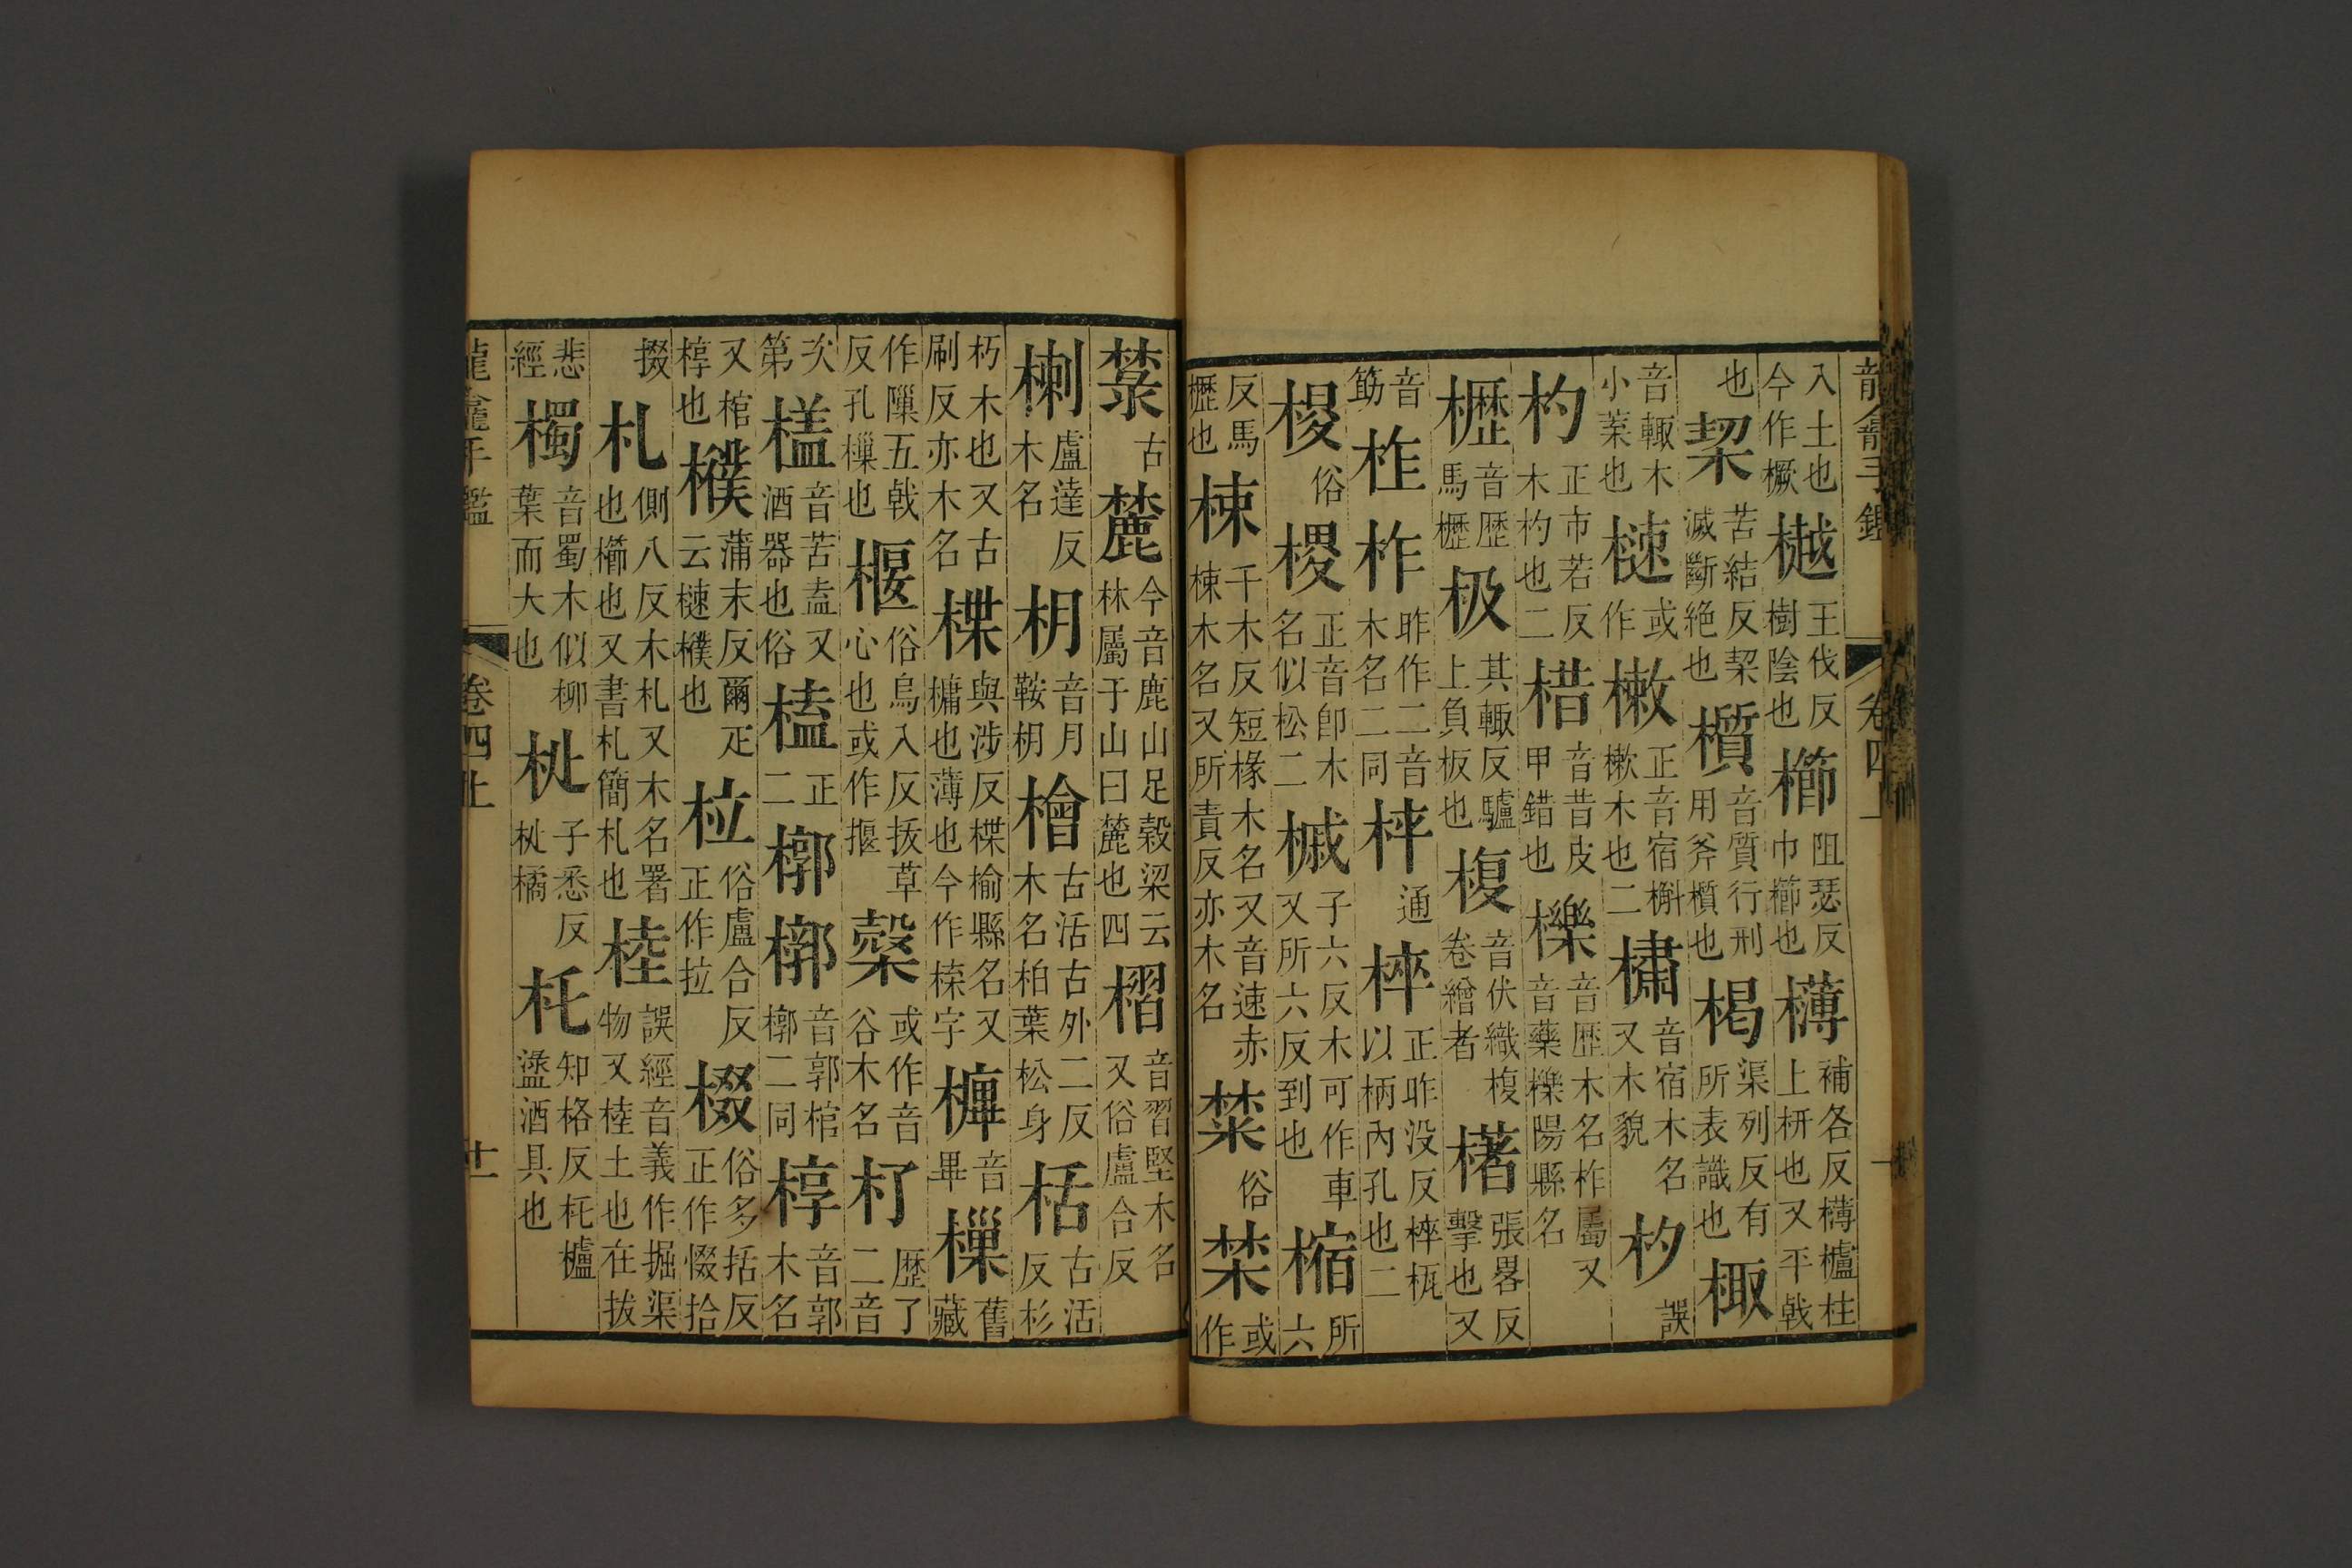 入土也今作橛樾王伐反樹陰也櫛阻瑟反巾櫛也欂補各反欂櫨柱上枅也又平戟
也栔苦結反栔滅斷絶也櫍音質行刑用斧櫍也楬渠列反有所表識也棷
音輙木小葉也樋或作樕正音宿槲樕木也二橚音宿木名又木貌杦誤
杓正市若反木杓也二棤音昔皮甲錯也櫟音歴木名柞屬又音藥櫟陽縣名
櫪音歴馬櫪极其輙反驢上負板也椱音伏織椱卷繒者櫡張畧反擊也又
音筯柞柞昨作二音木名二同椊通椊正昨没反椊杌以柄内孔也二
㮨俗㮨正音卽木名似松二槭子六反木可作車又所六反到也樎所六
反馬櫪也棟千木反短椽木名又音速赤棟木名又所責反亦木名棽俗棽或作
菉古麓今音鹿山足穀梁云林屬于山曰麓也四槢音習堅木名又俗盧合反
楋盧達反木名枂音月鞍枂檜古活古外二反木名柏葉松身栝古活反杉
朽木也又古刷反亦木名楪與涉反楪榆縣名又牗也薄也今作䈎字㮿音畢樔舊藏
作隟五戟反孔樔也椻俗烏入反拔草心也或作揠糳或作音谷木名朾歴了二音
次第榼音苦盍又酒器也俗榼正二槨槨音郭棺槨二同椁音郭木名
又棺椁也樸蒲末反爾疋云樕樸也柆俗盧合反正作拉棳俗多括反正作惙拾
掇札側八反木札又木名署也櫛也又書札簡札也㭲誤經音義作掘渠物又㭲土也在拔
悲經㯮音蜀木似柳葉而大也枇子悉反枇橘杔知格反杔櫨盪酒具也
龍龕手鑑 卷四上 十一